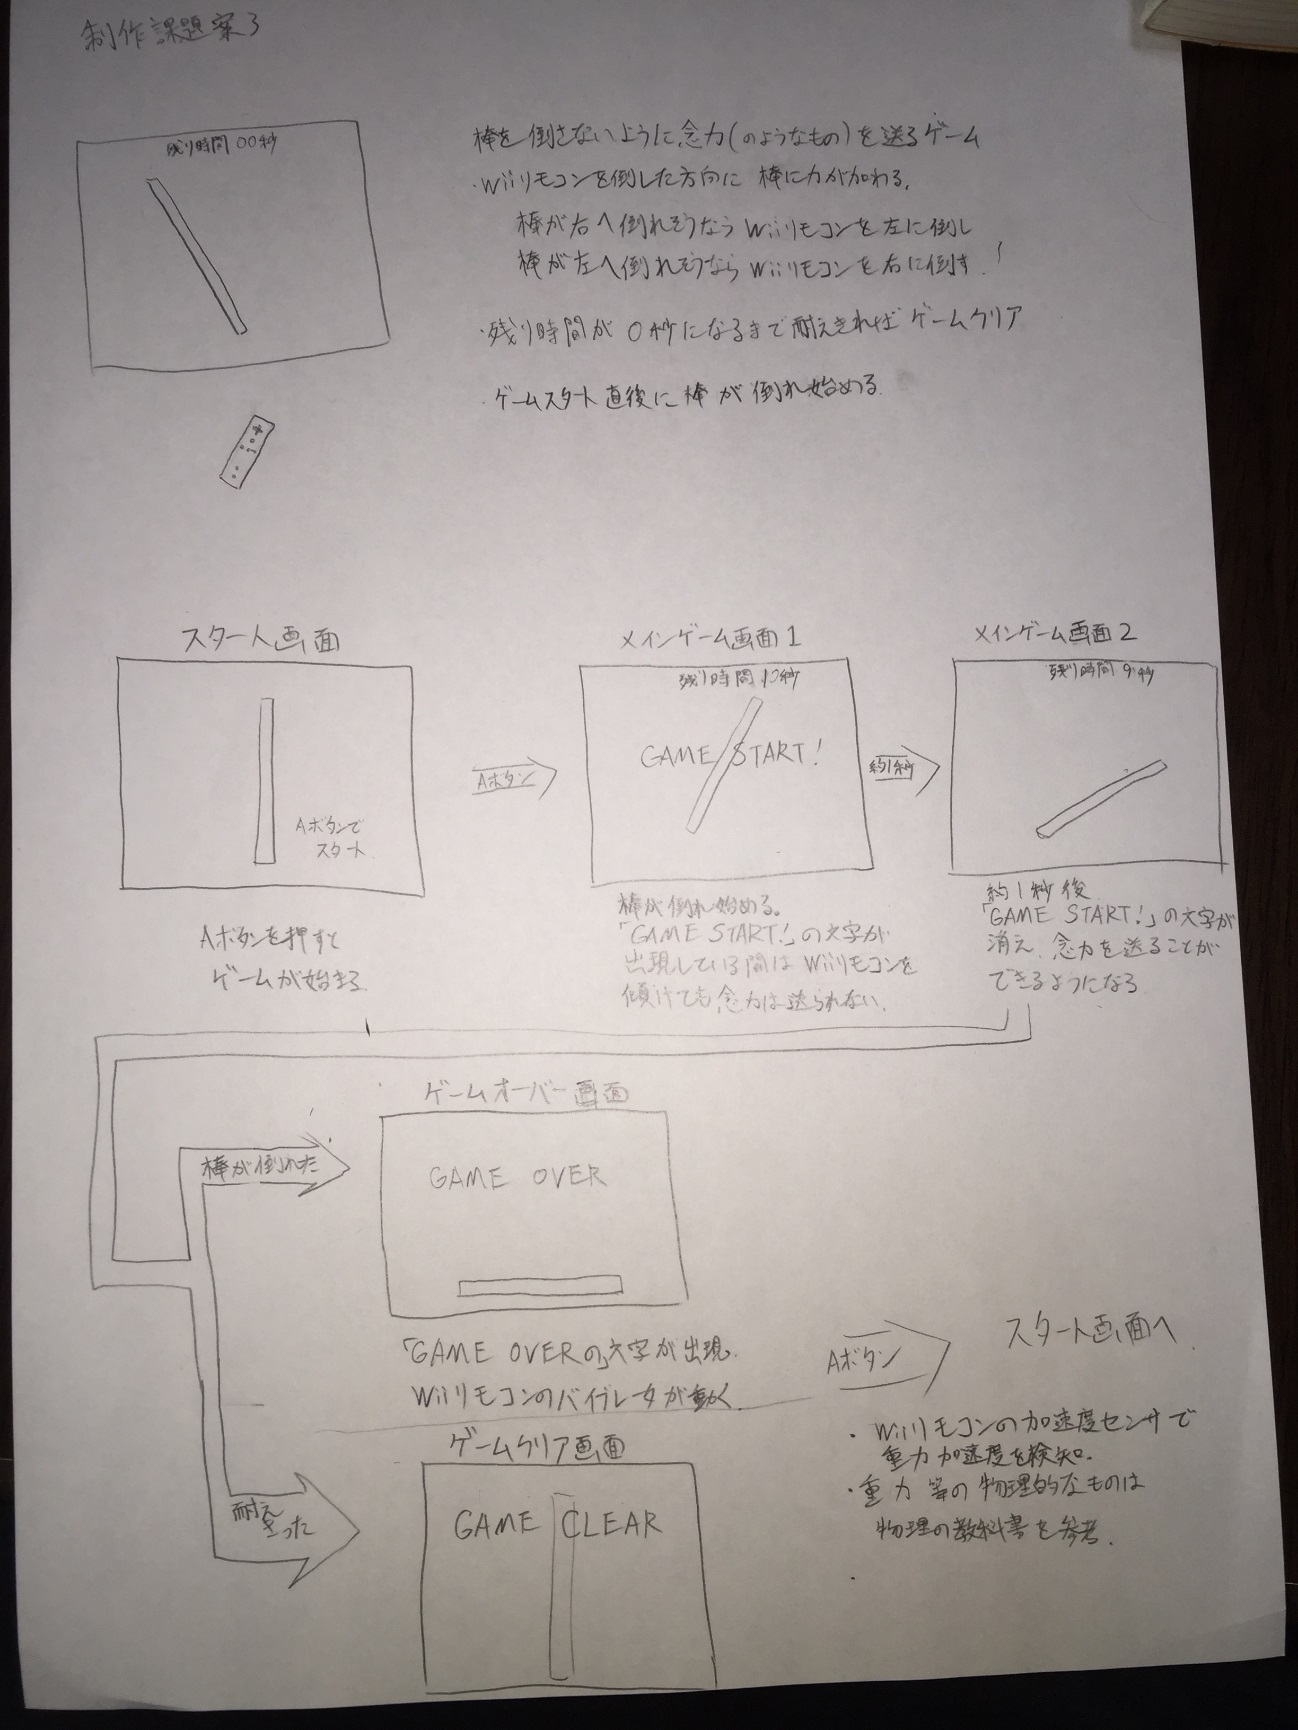 制作課題案3
残り時間00秒
棒を倒さないように念力(のようなもの)を送るゲーム
・Wiiリモコンを倒した方向に棒に力が加わる。
棒が右へ倒れそうならWiiリモコンを左に倒し
棒が左へ倒れそうならWiiリモコンを右に倒す。
・残り時間が0秒になるまで耐えきればゲームクリア
・ゲームスタート直後に棒が倒れ始める。
スタート画面
Aボタンで
スタート
Aボタンを押すと
ゲームが始まる
Aボタン
メインゲーム画面1
残り時間10秒
GAME START!
棒が倒れ始める。
「GAME START!」の文字が
出現している間はWiiリモコンを
傾けても念力は送られない。
約1秒
メインゲーム画面2
残り時間9秒
約1秒後
「GAME START!」の文字が
消え、念力を送ることが
できるようになる
棒が倒れた
ゲームオーバー画面
GAME OVER
「GAME OVERの」文字が出現。
Wiiリモコンのバイブレータが動く。
耐えきった
ゲームクリア画面
GAME CLEAR
Aボタン
スタート画面へ
・Wiiリモコンの加速度センサで
重力加速度を検知。
・重力等の物理的なものは
物理の教科書を参考。